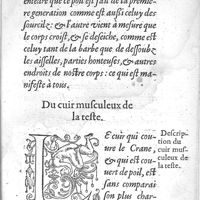 entendre que ce poil est fait de la premie-
re generation comme est aussi celuy des
sourcilz: & l'autre vient à mesure que
le corps croist, & se deseiche, comme est
celuy tant de la barbe que de dessoubz
les aisselles, parties honteuses, & autres
endroits de nostre corps: ce qui est ma-
nifeste à tous.
Du cuir musculeux de
la teste.
LE cuir qui cou-
ure le Crane,
& qui est cou-
uert de poil, est
sans comparai
son plus char-
Description
du
cuir mus-
culeux de
la teste.